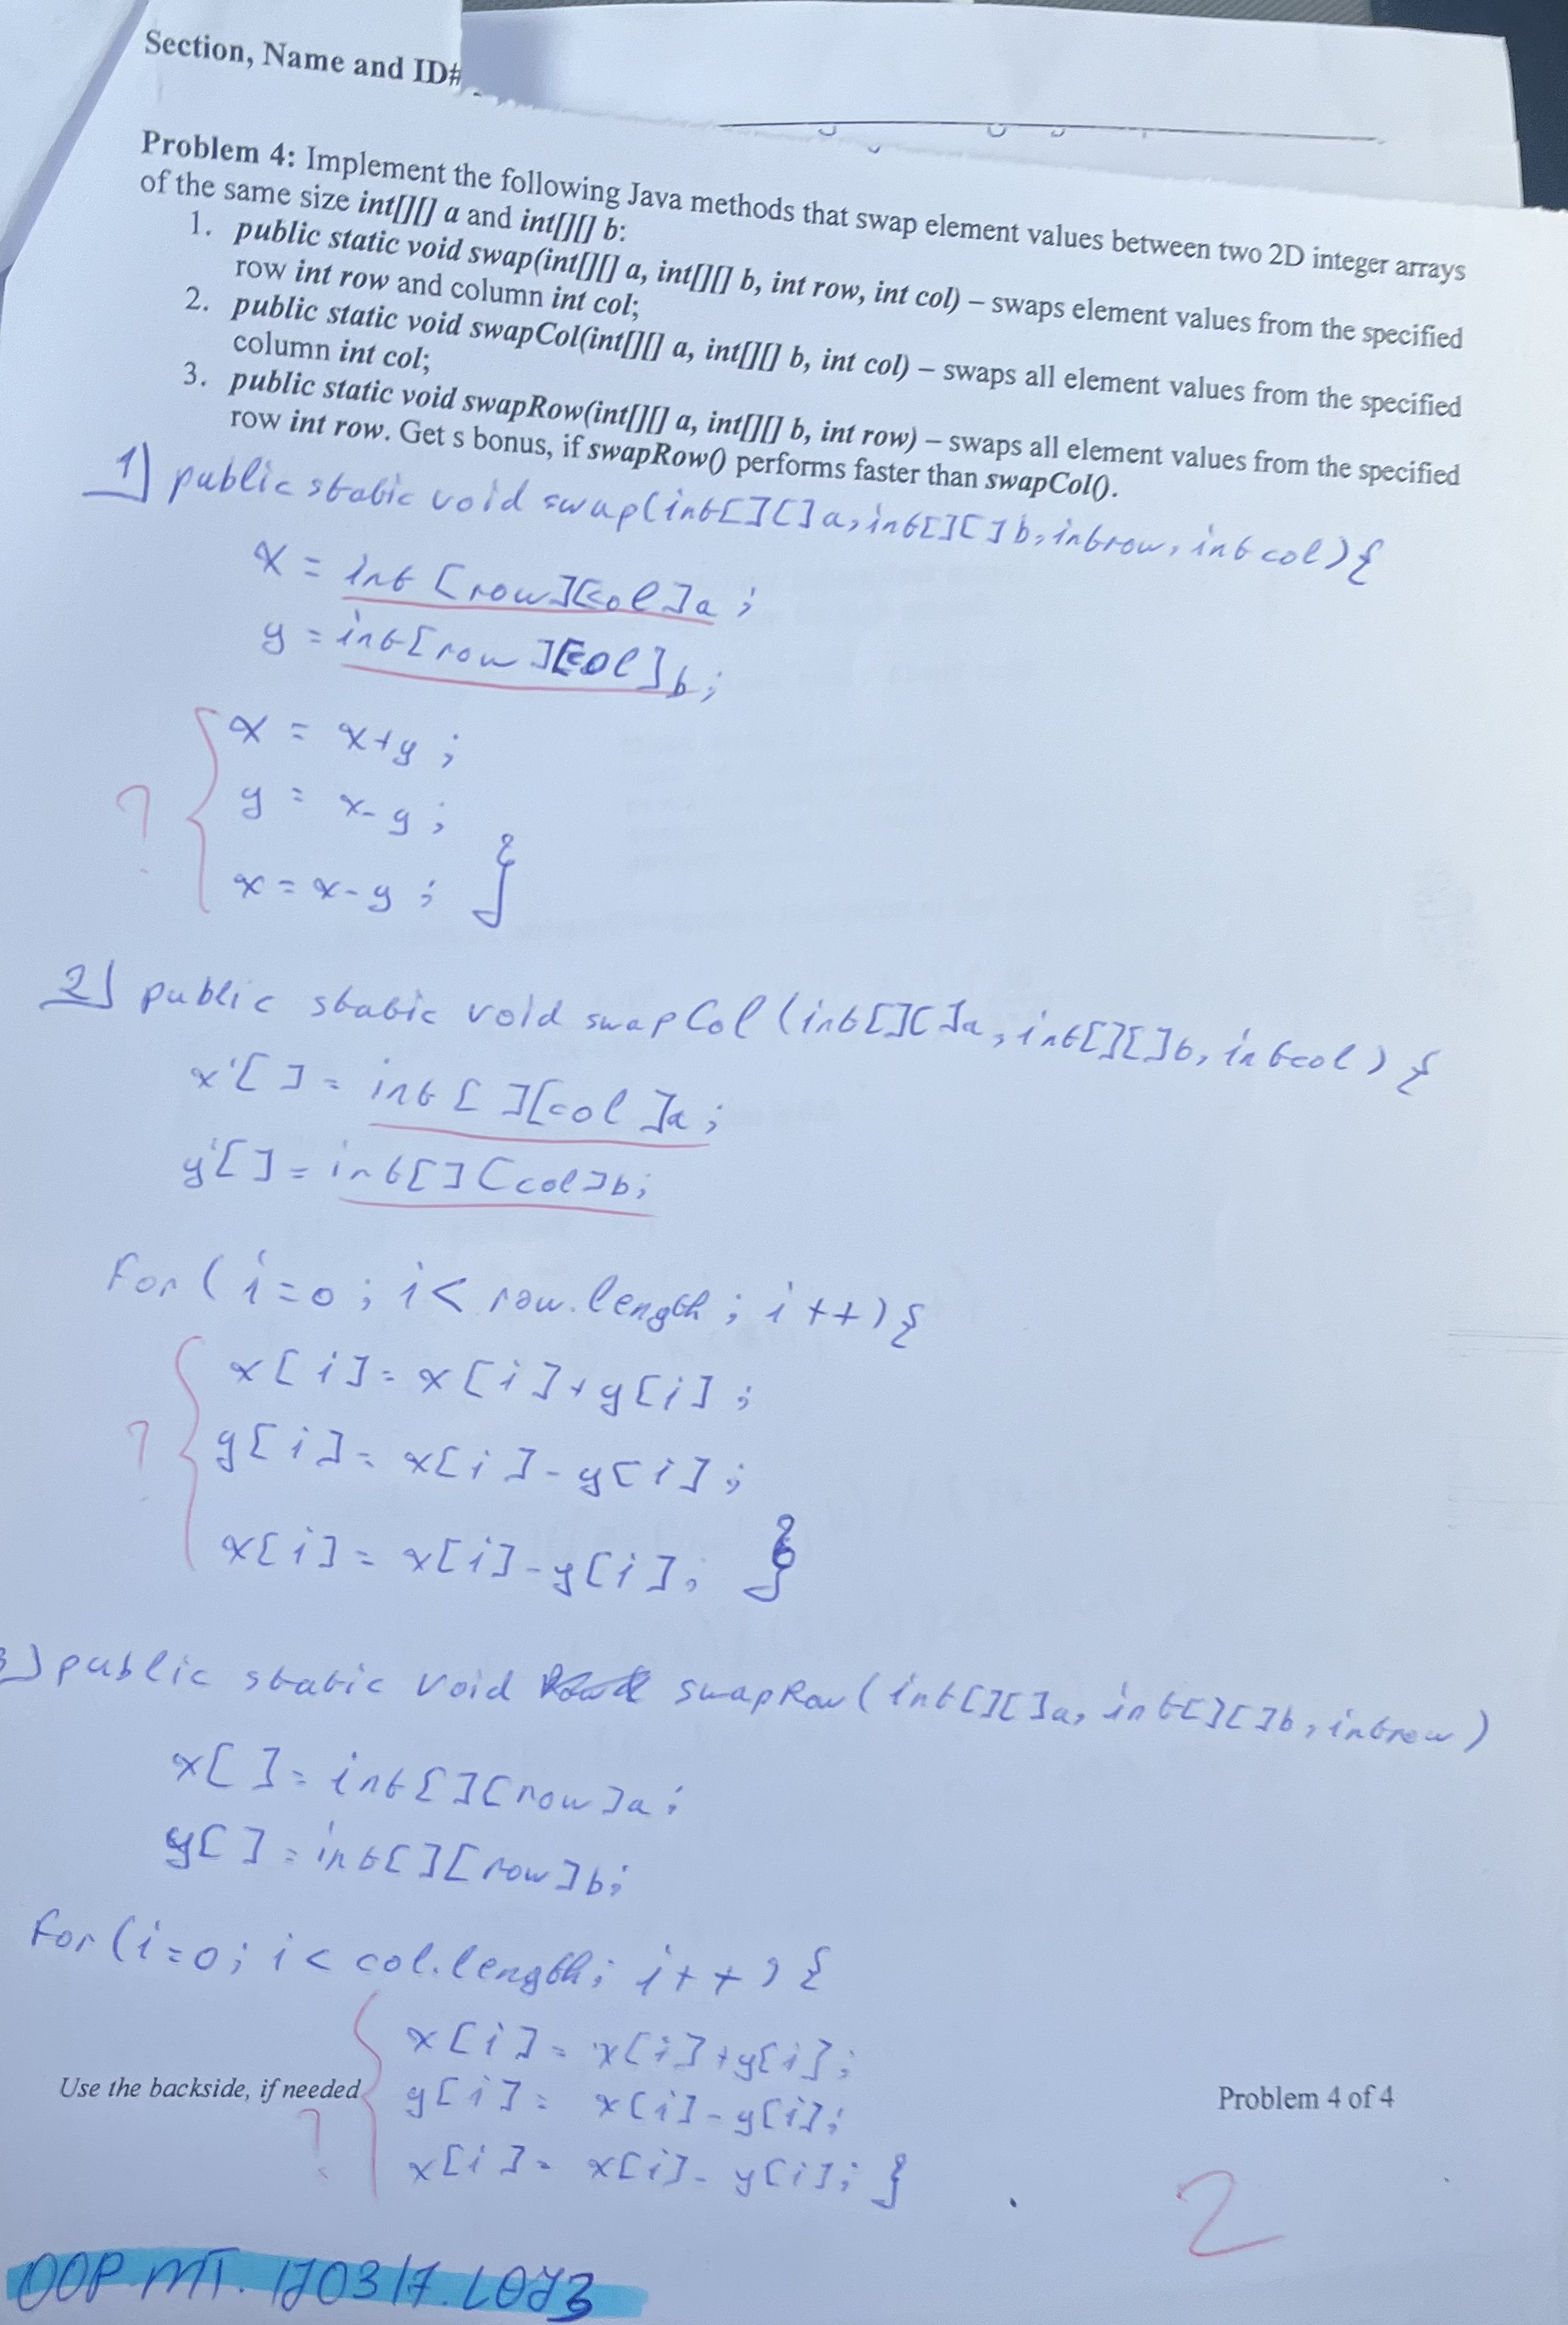 Section, Name and ID#
Problem 4: Implement the following Java methods that swap element values between two 2D integer arrays
of the same size int[][] a and int[][] b:
1. public static void swap(int[][] a, int[][] b, int row, int col) – swaps element values from the specified
row int row and column int col;
2. public static void swapCol(int[][] a, int[][] b, int col) – swaps all element values from the specified
column int col;
3. public static void swapRow(int[][] a, int[][] b, int row) – swaps all element values from the specified
row int row. Get s bonus, if swapRow() performs faster than swapCol().
1) public static void swap(int[][]a, int[][]b, int row, int col){
x = int [row][col]a;
y = int[row][col]b;
x = x+y;
? y = x-y;
x = x-y; }
2) public static void swapCol(int[][]a, int[][]b, int col) {
x[] = int[][col]a;
y[] = int[][col]b;
For (i=0; i< row.length; i++){
x[i] = x[i]+y[i];
? y[i] = x[i]-y[i];
x[i] = x[i]-y[i]; }
3) public static void swapRow(int[][]a, int[][]b, int row)
x[] = int[][row]a;
y[] = int[][row]b;
For (i=0; i< col.length; i++){
x[i] = x[i]+y[i];
Use the backside, if needed y[i] = x[i]-y[i]; Problem 4 of 4
? x[i] = x[i]-y[i]; }
2
OOP.MT.170317.L073